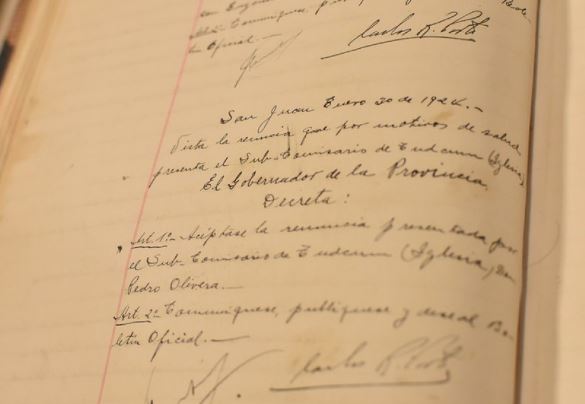 Oficial.—
Carlos R. Porto
San Juan Enero 30 de 1924.—
Vista la renuncia que por motivos de salud
presenta el Sub-Comisario de Tudcum (Iglesia)
El Gobernador de la Provincia
Decreta:
Art. 1º.— Acéptase la renuncia presentada por
el Sub-Comisario de Tudcum (Iglesia) Don
Pedro Olivera.—
Art. 2º Comuníquese, publíquese y dese al Bo-
letin Oficial.—
Carlos R. Porto